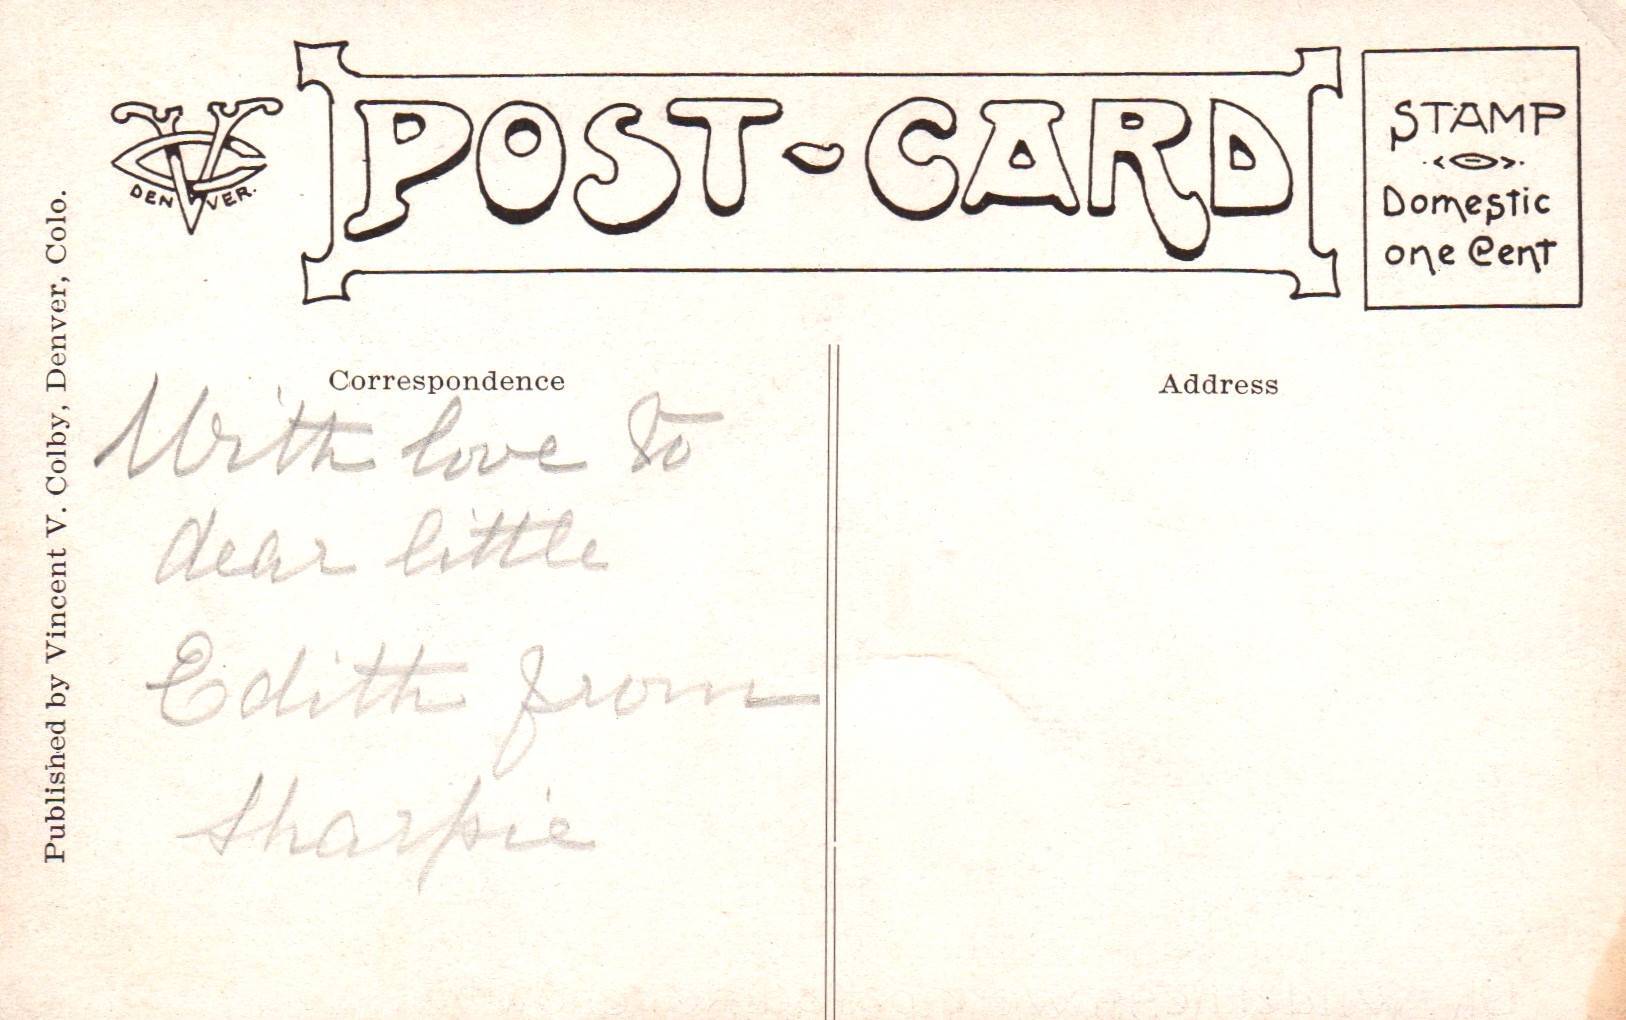 POST-CARD
DENVER.
STAMP
Domestic
one Cent
Published by Vincent V. Colby, Denver, Colo.
Correspondence
With love to
dear little
Edith from
Sharpie
Address